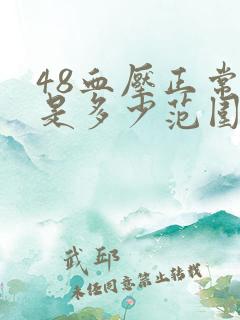 48血压正常
是多少范围
武邱
未经同意禁止转载